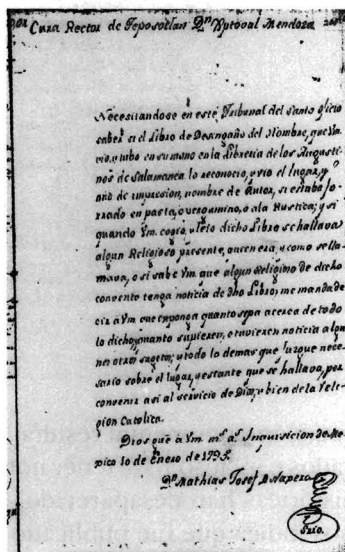 Cura Rector de Teposotlan Dn Xptoval Mendoza
Necesitandose en este Tribunal del Santo Oficio
saber si el Libro de Desengaño del Hombre, que Vm
vio, y tubo en su mano en la Libreria de los Augusti-
nos de Salamanca lo reconocio, y vio el lugar, y
año de impresion, nombre de Autor, si estaba fo-
rrado en pasta, o vergamino, o a la Rustica; y si
quando Vm. cogio, u leio dicho Libro se hallava
algun Religioso presente, o
en cera, y como se lla-
mava, o si sabe Vm que algun Religioso de dicho
convento tenga noticia de dho Libro; me manda de-
cir a Vm que exponga quanto sepa acerca de todo
lo dicho, quanto supieren, o tuvieren noticia algu-
nos otros sugetos; y todo lo demas que juzgue nece-
sario sobre el lugar, y estante que se hallava, por
convenir asi al servicio de Dios, y bien de la Reli-
gion Catolica.
Dios gue à Vm ms as Inquisicion de Me-
xico 10 de Enero de 1795.
Dn Mathias Josef de Naxera
Srio.